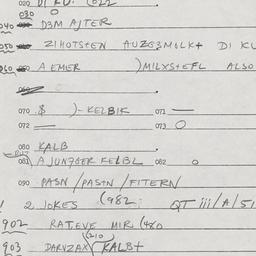 020 DI KU. (022
030 0
040 DƷM AJTER
050 ZIHOTSTEN AUZGƷMOLKT DI KU
060 A EMER )MILXSTEFL ALSO
070 $ )-KELBIK 071 —
072 — 073 0
080 KALB
081 A JUNGGER KELBL 082 0
090 PASN/PASTN/FITERN
2 JOKES (982: QT iii/A/51
902 RATEVE MIR (480
(210
903 DARVZAX KALB+